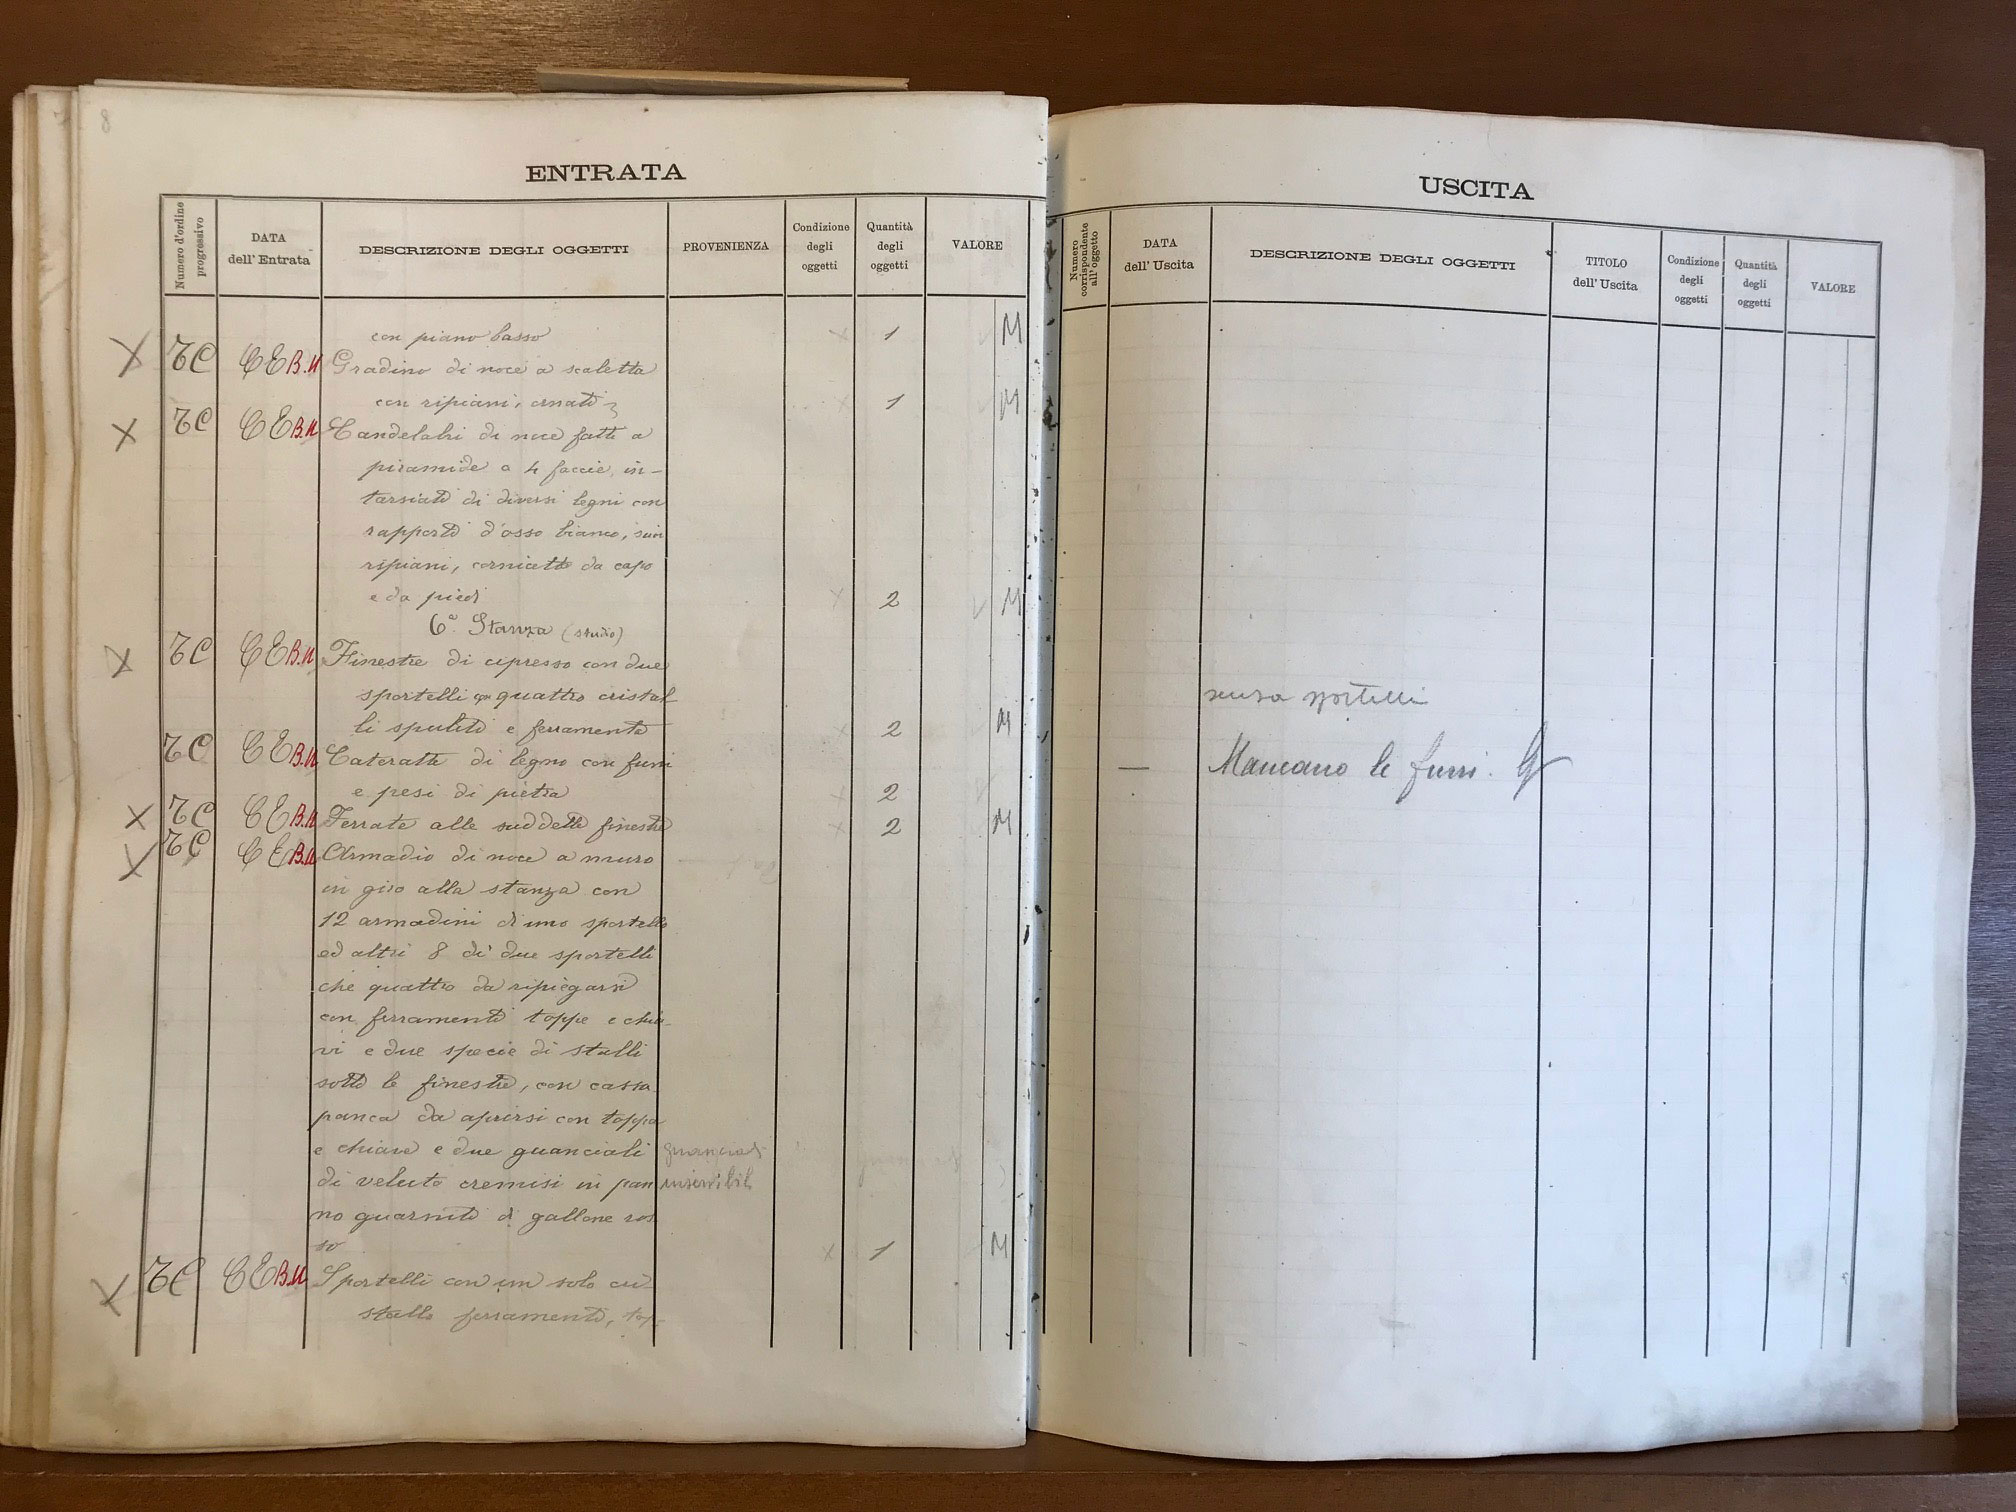 8
ENTRATA
Numero d'ordine progressivo
DATA dell' Entrata
DESCRIZIONE DEGLI OGGETTI
PROVENIENZA
Condizione degli oggetti
Quantità degli oggetti
VALORE
con piano basso × 1 M
X TC CE B.U Gradino di noce a scaletta
con ripiani, ornati × 1 M
X TC CE B.U Candelabri di noce fatti a
piramide a 4 faccie, in-
tarsiati di diversi legni con
rapporti d'osso bianco, suoi
ripiani, cornicette da capo
e da piedi × 2 M
6a. Stanza (studio)
X TC CE B.U Finestre di cipresso con due
sportelli con quattro cristal
li spuliti e ferramenti × 2 M
TC CE B.U Cateratte di legno con funi
e pesi di pietra × 2
X TC CE B.U Ferrate alle suddette finestre × 2 M
X TC CE B.U Armadio di noce a muro
in giro alla stanza con
12 armadini di uno sportello
ed altri 8 di due sportelli
che quattro da ripiegarsi
con ferramenti toppe e chia-
vi e due specie di stalli
sotto le finestre, con cassa
panca da aprirsi con toppa
e chiave e due guanciali guanciali
di veluto cremisi in pan inservibili
no guarniti di gallone ros
so × 1 M
X TC CE B.U Sportelli con un solo cri-
stallo ferramenti, top-
USCITA
Numero corrispondente all'oggetto
DATA dell' Uscita
DESCRIZIONE DEGLI OGGETTI
TITOLO dell' Uscita
Condizione degli oggetti
Quantità degli oggetti
VALORE
senza sportelli
— Mancano le funi.